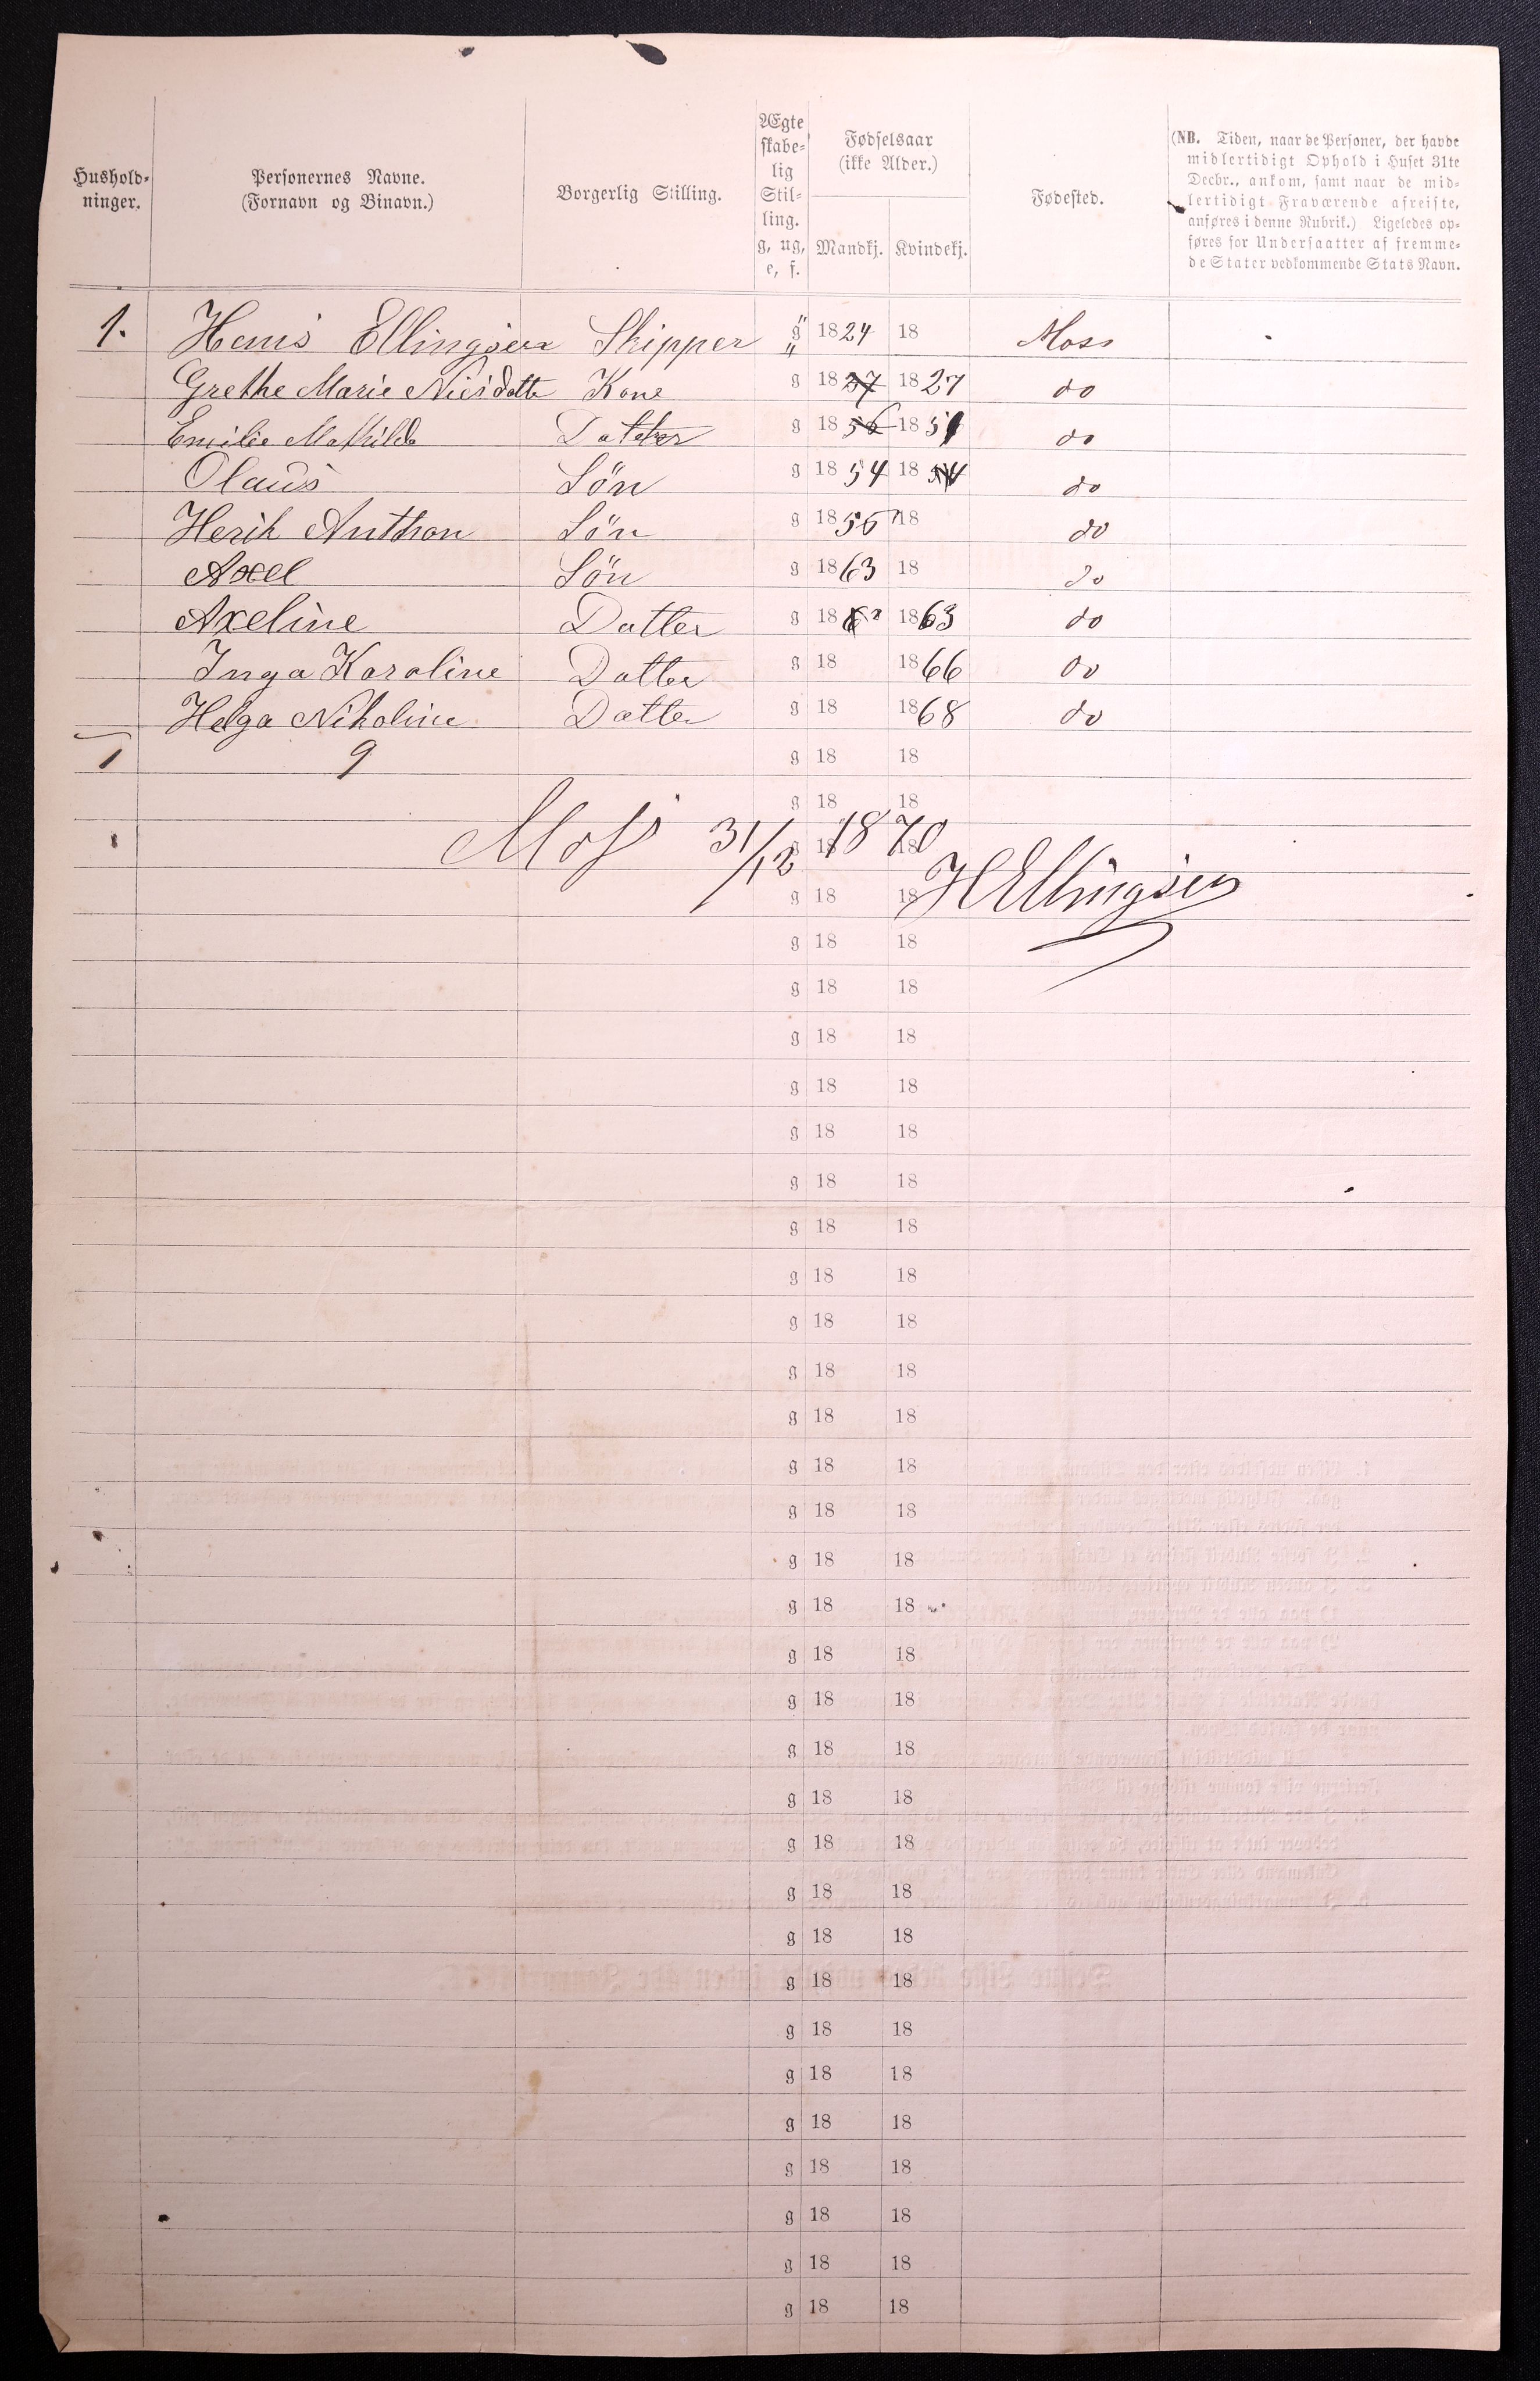 Hushold-
ninger.
Personernes Navne.
(Fornavn og Binavn.)
Borgerlig Stilling.
Ægte
skabe-
lig
Stil-
ling.
g, ug,
e, f.
Fødselsaar
(ikke Alder.)
Mandkj. Kvindekj.
Fødested.
(NB. Tiden, naar de Personer, der havde
midlertidigt Ophold i Huset 31te
Decbr., ankom, samt naar de mid-
lertidigt Fraværende afreiste,
anføres i denne Rubrik.) Ligeledes op-
føres for Undersaatter af fremme-
de Stater vedkommende Stats Navn.
1. Hans Ellingsen Skipper g 1824 18 Moss
Grethe Marie Kone g 1827 1827 do
Emilie Mathilde Datter g 1856 1851 do
Olaus Sön g 1854 1854 do
Herik Anthon Sön g 1856 18 do
Axel Sön g 1863 18 do
Axeline Datter g 18 1863 do
Inga Karoline Datter g 18 1866 do
Helga Nikoline Datter g 18 1868 do
1 9 g 18 18
g 18 18
Moss 31/12 1870 g 18 18
g 18 18 HEllingsen
g 18 18
g 18 18
g 18 18
g 18 18
g 18 18
g 18 18
g 18 18
g 18 18
g 18 18
g 18 18
g 18 18
g 18 18
g 18 18
g 18 18
g 18 18
g 18 18
g 18 18
g 18 18
g 18 18
g 18 18
g 18 18
g 18 18
g 18 18
g 18 18
g 18 18
g 18 18
g 18 18
g 18 18
g 18 18
g 18 18